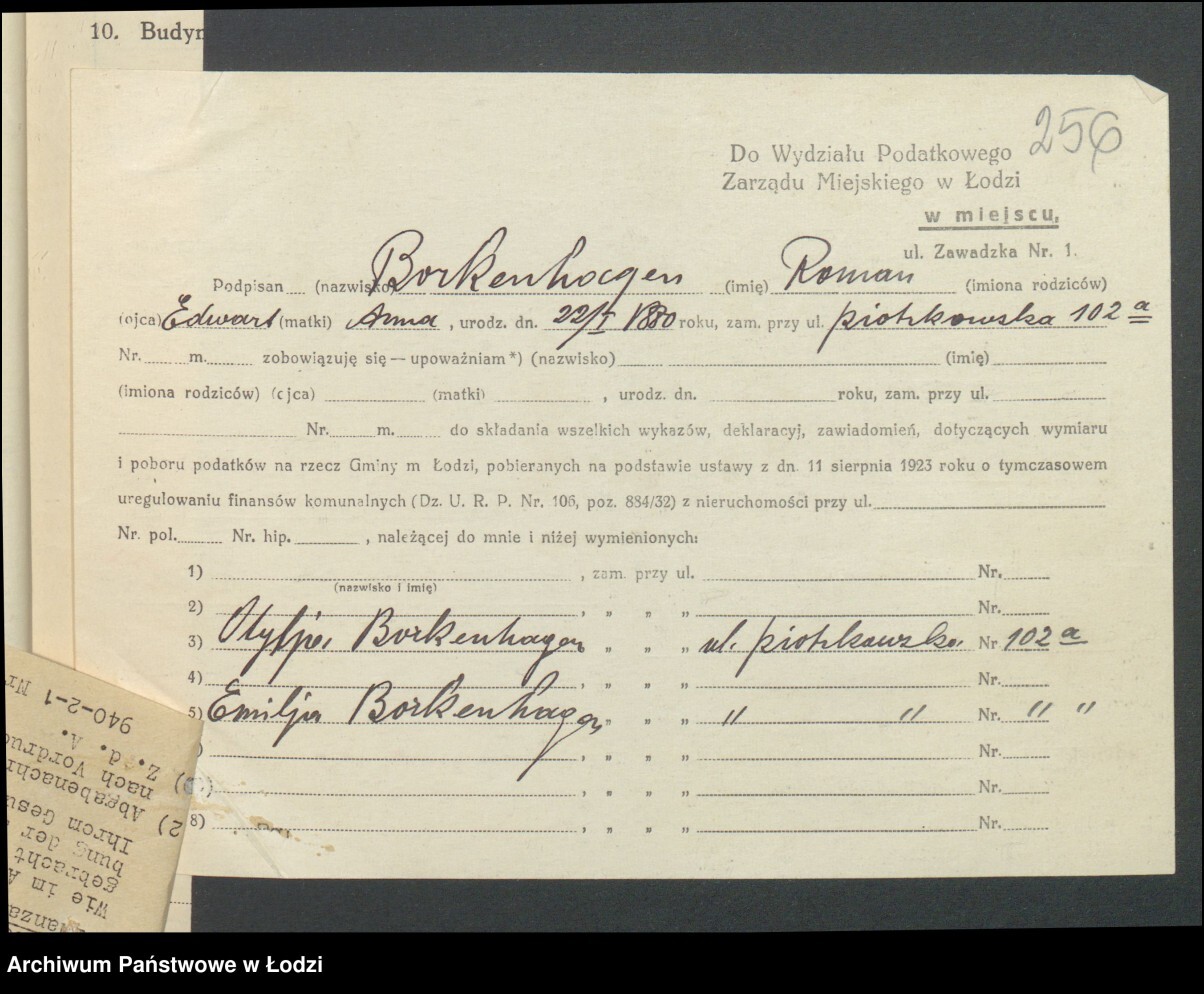 10. Budyn
256
Do Wydziału Podatkowego
Zarządu Miejskiego w Łodzi
w miejscu,
ul. Zawadzka Nr. 1.
Podpisan (nazwisko) Borkenhagen (imię) Roman (imiona rodziców)
(ojca) Edwart (matki) Anna, urodz. dn. 22/I 1880 roku, zam. przy ul. piotrkowska 102 a
Nr. m. zobowiązuję się — upoważniam*) (nazwisko) (imię)
(imiona rodziców) (ojca) (matki) , urodz. dn. roku, zam. przy ul.
Nr. m. do składania wszelkich wykazów, deklaracyj, zawiadomień, dotyczących wymiaru
i poboru podatków na rzecz Gminy m Łodzi, pobieranych na podstawie ustawy z dn. 11 sierpnia 1923 roku o tymczasowem
uregulowaniu finansów komunalnych (Dz. U. R. P. Nr. 106, poz. 884/32) z nieruchomości przy ul.
Nr. pol. Nr. hip. , należącej do mnie i niżej wymienionych:
1) , zam. przy ul. Nr.
(nazwisko i imię)
2) , „ „ „ Nr.
3) Otylja Borkenhagen „ „ „ ul. piotrkowska Nr 102 a
4) , „ „ „ Nr.
5) Emilja Borkenhagen „ „ „ " " Nr. " "
) , „ „ „ Nr.
) , „ „ „ Nr.
8) , „ „ „ Nr.
940-2-1 Nr
z. d. A.
nach Vordruc
2) Abgabenachr
Ihrem Gesu
bung der
gebracht
wie im A
Archiwum Państwowe w Łodzi